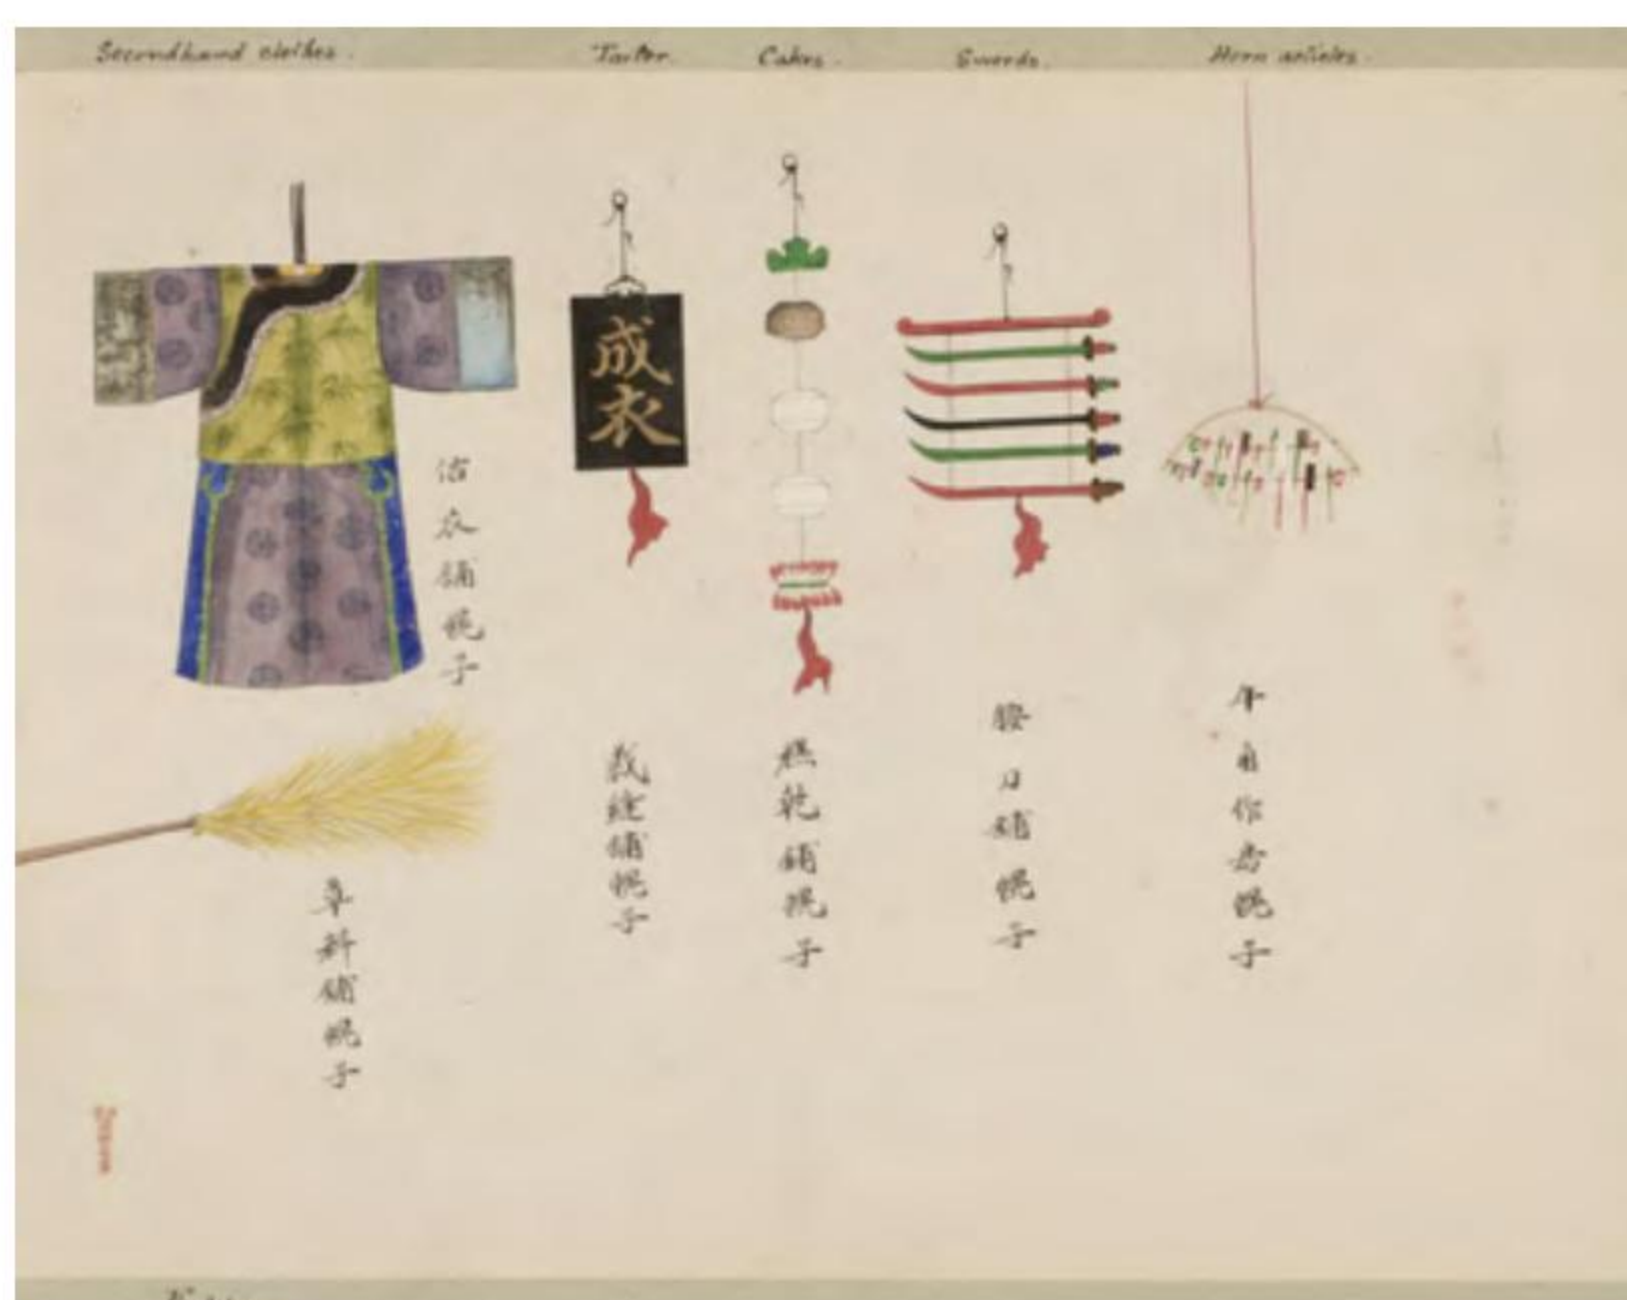 Secondhand clothes.
Tailor.
Cakes.
Swords.
Horn articles.
成衣
估衣鋪幌子
裁縫鋪幌子
糕乾鋪幌子
腰刀鋪幌子
牛角作房幌子
草料鋪幌子